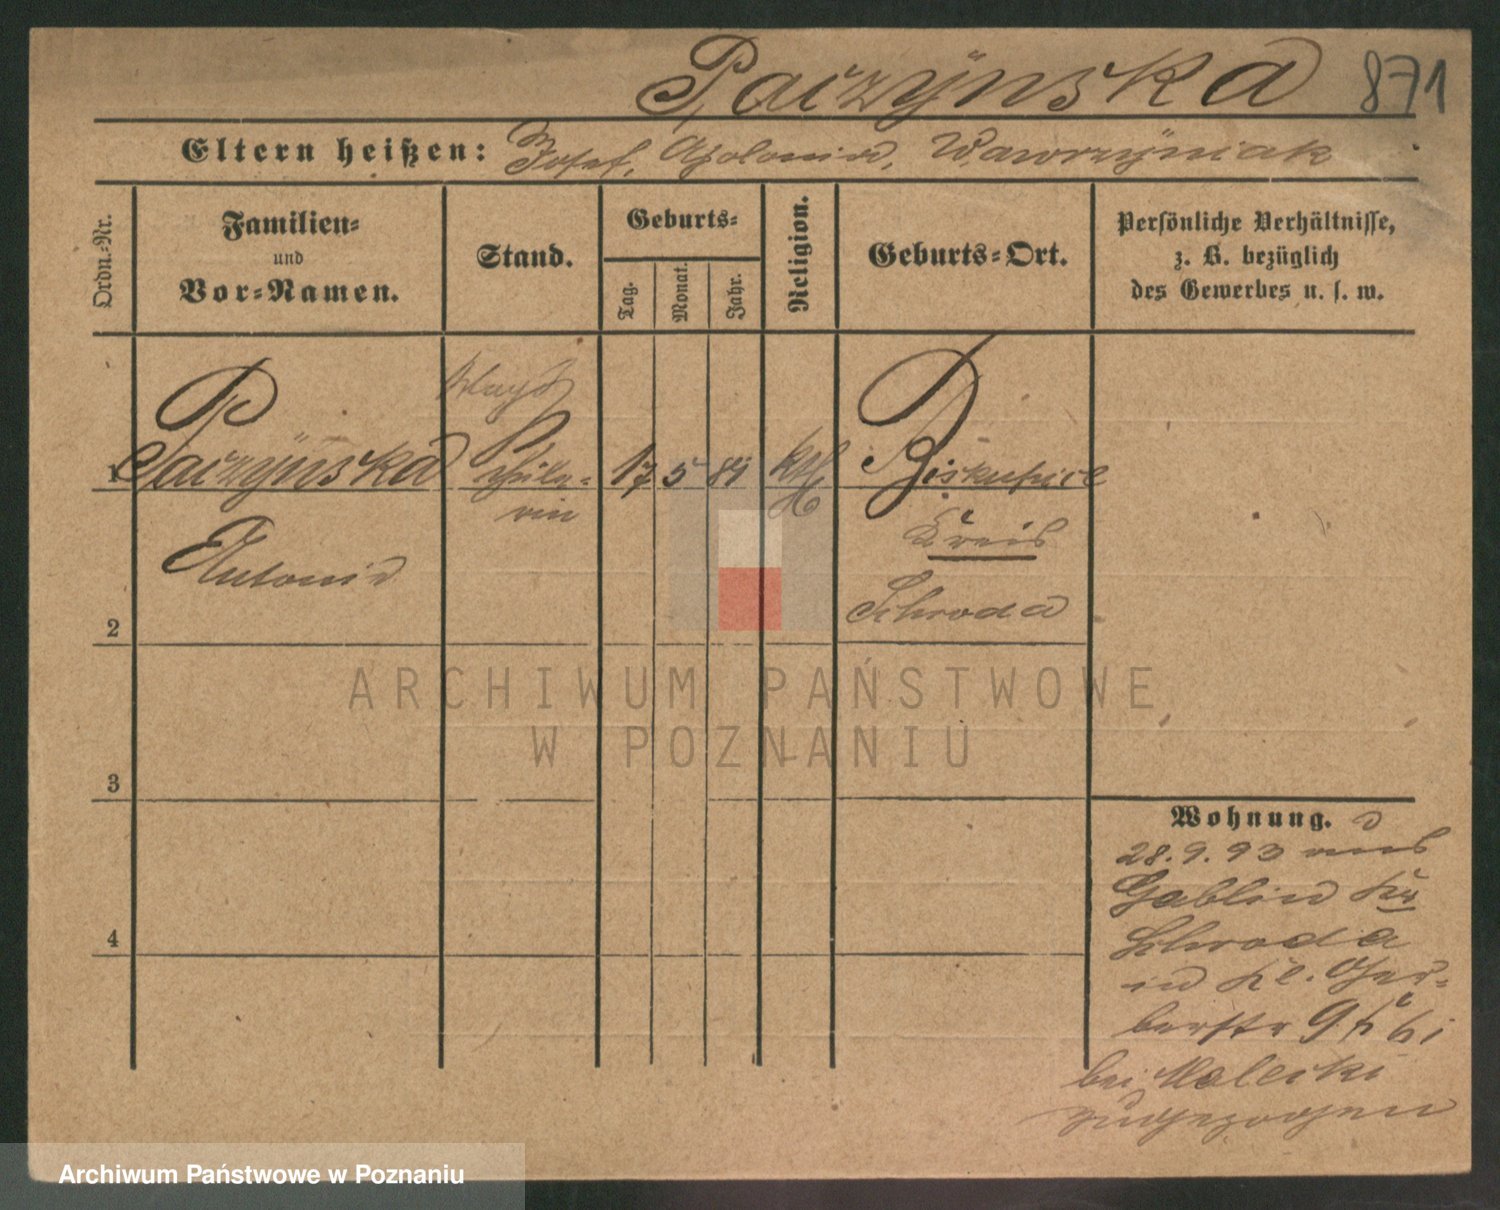 Paczÿnska 871
Eltern heißen: Josef, Apolonia, Wawrzÿniak
Ordn.-Nr.
Familien-
und
Vor-Namen.
Stand.
Geburts-
Tag.
Monat.
Jahr.
Religion.
Geburts-Ort.
Persönliche Verhältnisse,
z. B. bezüglich
des Gewerbes u. s. w.
1 Paczÿnska 17 5 84 kth Biskupice
Antonia
Kreis
Schroda
2
3
4
Wohnung.
28.9.93 aus
Kr
Schroda
in Kl. Ger-
berstr 9
bei Malecki
zugezogen
ARCHIWUM PAŃSTWOWE
W POZNANIU
Archiwum Państwowe w Poznaniu